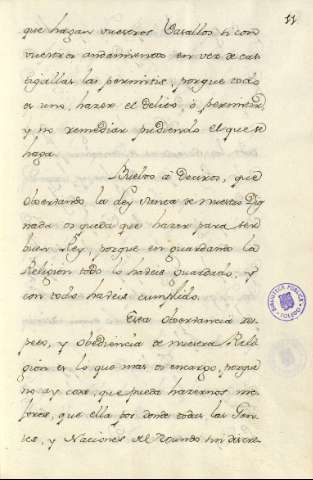 11
que hagan vuestros Vasallos si con
vuestros andamientos en vez de cas
tigallas las permitis, porque todo
es uno, hazer el delito, ó permitirlo
y no remediar pudiendo el que se
haga.
Buelvo a deciros, que
observando la Ley de nuestro Dig
nada os queda que hazer para ser
buen Rey, porque en guardando la
Religion todo lo haveis guardado, y
con todo haveis cumplido.
Esta observancia res-
peto, y obediencia de nuestra Reli-
gion es lo que mas os encargo, porque
no ay cosa, que pueda hazernos me-
jores, que ella por donde todas las Gen-
tes, y Naciones del Mundo sin discre-
BIBLIOTECA PUBLICA
TOLEDO